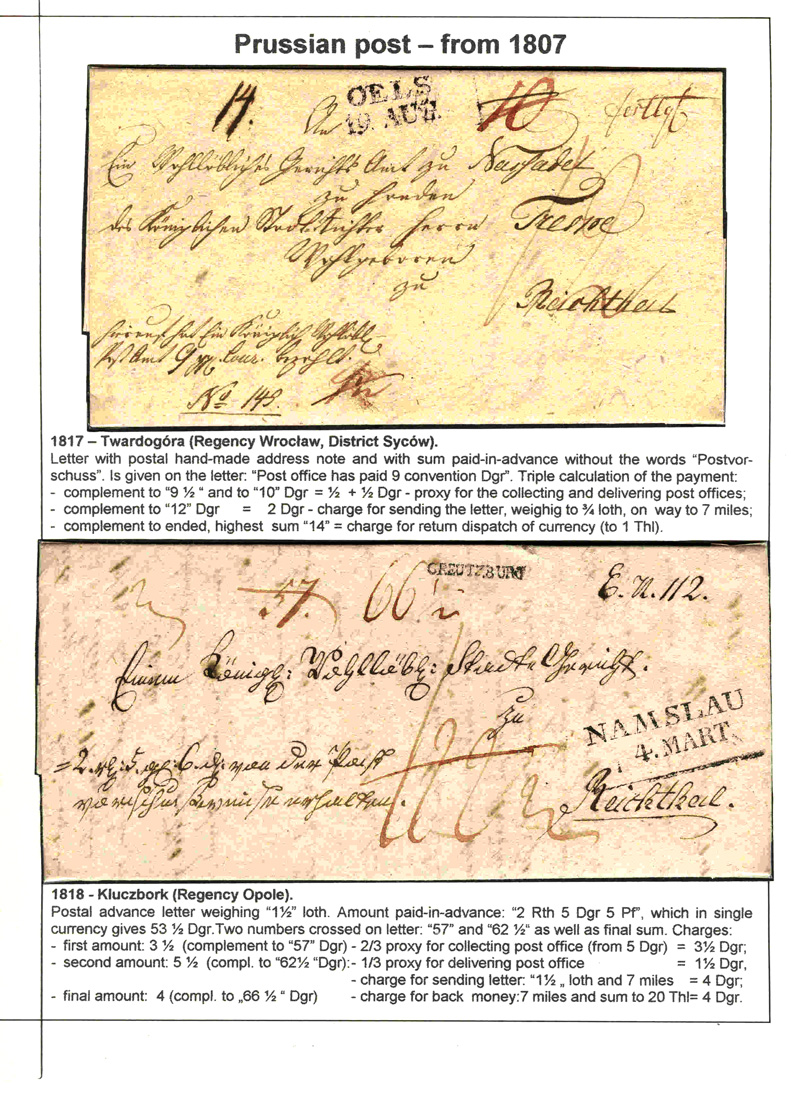 Prussian post – from 1807
14.
OELS
19. AUG.
10
An
Ein Wohllöbliches Gerichts Amt zu Nassadel
zu Handen
des Königlichen Stadtrichter Herrn Trespe
Wohlgeboren
zu
Reichthal
No 149.
1817 – Twardogóra (Regency Wrocław, District Syców).
Letter with postal hand-made address note and with sum paid-in-advance without the words “Postvor-
schuss”. Is given on the letter: “Post office has paid 9 convention Dgr”. Triple calculation of the payment:
- complement to “9 ½ “ and to “10” Dgr = ½ + ½ Dgr - proxy for the collecting and delivering post offices;
- complement to “12” Dgr = 2 Dgr - charge for sending the letter, weighig to ¾ loth, on way to 7 miles;
- complement to ended, highest sum “14” = charge for return dispatch of currency (to 1 Thl).
CREUTZBURG
57. 66½ E. N. 112.
Einem Königl: Wohllöbl: Stadt Gericht.
zu
NAMSLAU
4. MART.
=2. rh: 5. gr: 6. d: von der Post
Reichthal.
vorschussweise erhalten.
1818 - Kluczbork (Regency Opole).
Postal advance letter weighing “1½” loth. Amount paid-in-advance: “2 Rth 5 Dgr 5 Pf”, which in single
currency gives 53 ½ Dgr.Two numbers crossed on letter: “57” and “62 ½“ as well as final sum. Charges:
- first amount: 3 ½ (complement to “57” Dgr) - 2/3 proxy for collecting post office (from 5 Dgr) = 3½ Dgr;
- second amount: 5 ½ (compl. to “62½ “Dgr):- 1/3 proxy for delivering post office = 1½ Dgr,
- charge for sending letter: “1½ „ loth and 7 miles = 4 Dgr;
- final amount: 4 (compl. to „66 ½ “ Dgr) - charge for back money:7 miles and sum to 20 Thl= 4 Dgr.